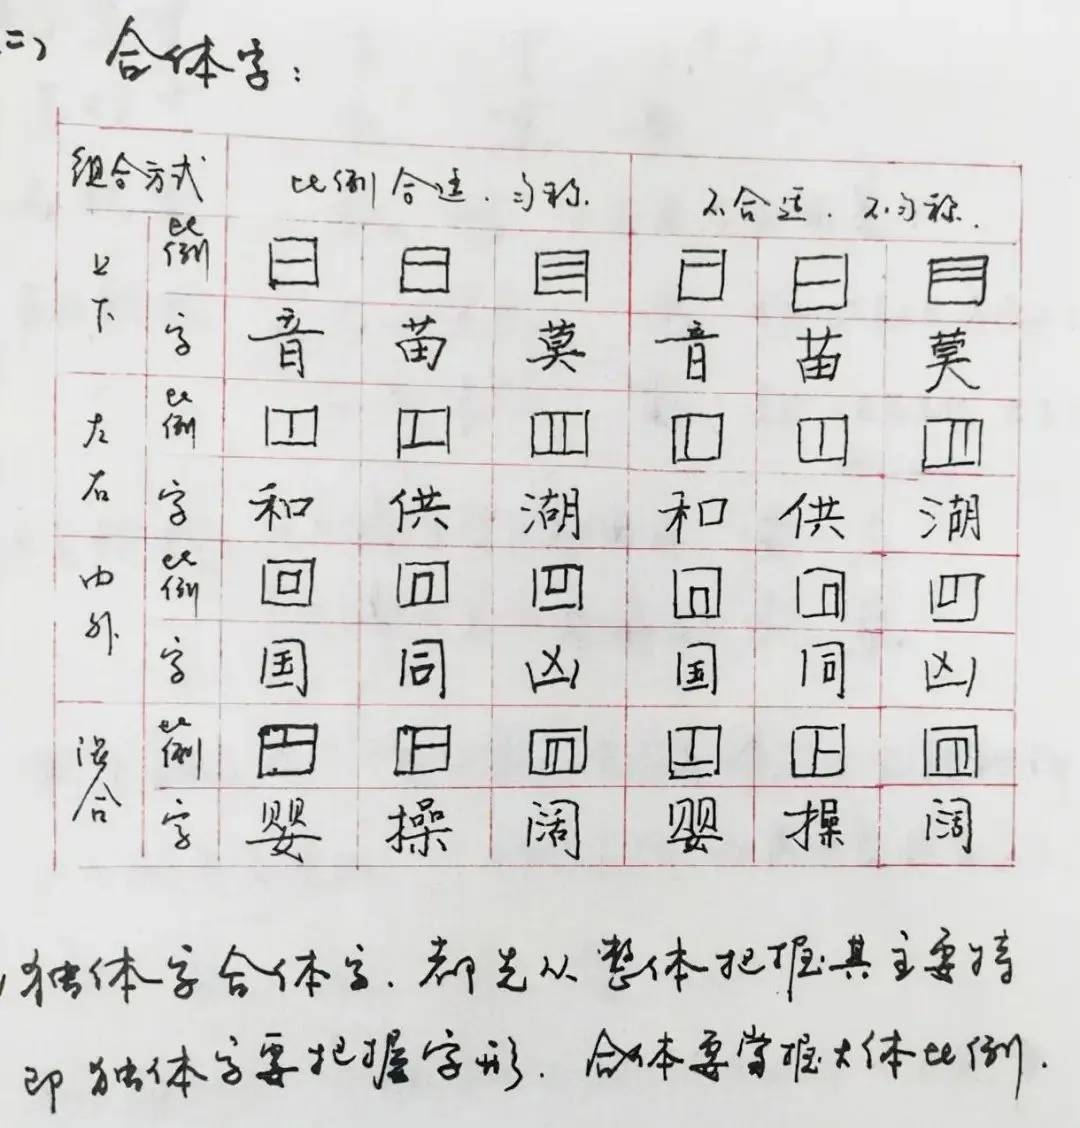 二、合体字：
组合方式 比例合适、匀称. 不合适、不匀称.
上下 比例
字 音 苗 莫 音 苗 莫
左右 比例
字 和 供 湖 和 供 湖
内外 比例
字 国 同 凶 国 同 凶
混合 比例
字 婴 操 阔 婴 操 阔
独体字合体字、都先从整体把握其主要特
即独体字要把握字形、合体要掌握大体比例.